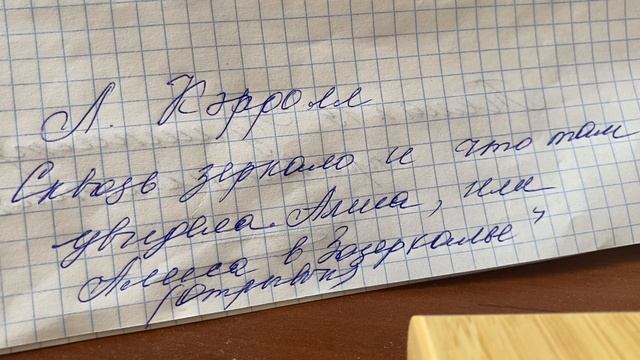 Л. Кэрролл
Сквозь зеркало и что там
увидела Алиса, или
Алиса в Зазеркалье"
(отрывок)